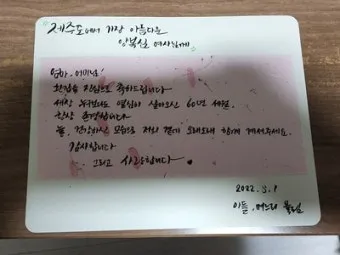 제주도에서 가장 아름다운
양복실 여사님께
엄마, 어머님!
환갑을 진심으로 축하드립니다
세상 누구보다도 열심히 살아오신 60년 세월.
항상 존경합니다
늘, 건강하신 모습으로 저희 곁에 오래오래 함께 계셔주세요.
감사합니다
그리고 사랑합니다.
2022. 3. 1
아들, 며느리 올림